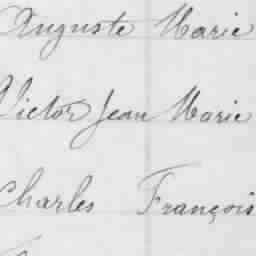 Auguste Marie
Victor Jean Marie
Charles François